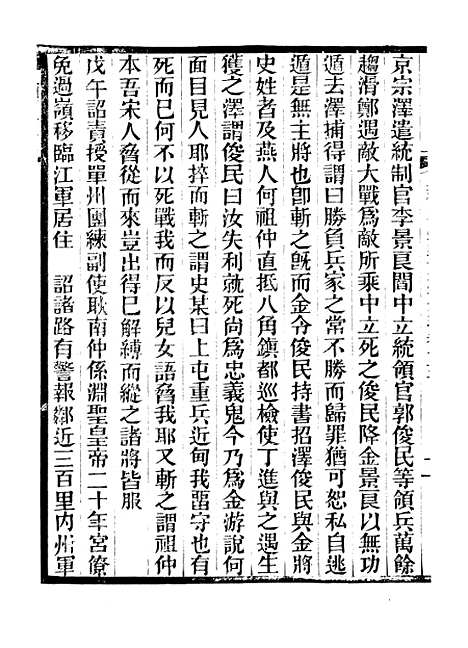 京宗澤遣統制官李景良閻中立統領官郭俊民等領兵萬餘
趨滑鄭遇敵大戰爲敵所乘中立死之俊民降金景良以無功
遁去澤捕得謂曰勝負兵家之常不勝而歸罪猶可恕私自逃
遁是無主將也卽斬之旣而金令俊民持書招澤俊民與金將
史姓者及燕人何祖仲直抵八角鎭都巡檢使丁進與之遇生
獲之澤謂俊民曰汝失利就死尙爲忠義鬼今乃爲金游說何
面目見人耶捽而斬之謂史某曰上屯重兵近甸我畱守也有
死而已何不以死戰我而反以兒女語脅我耶又斬之謂祖仲
本吾宋人脅從而來豈出得已解縛而縱之諸將皆服
戊午詔責授單州團練副使耿南仲係淵聖皇帝二十年宮僚
免過嶺移臨江軍居住　詔諸路有警報鄰近三百里內州軍